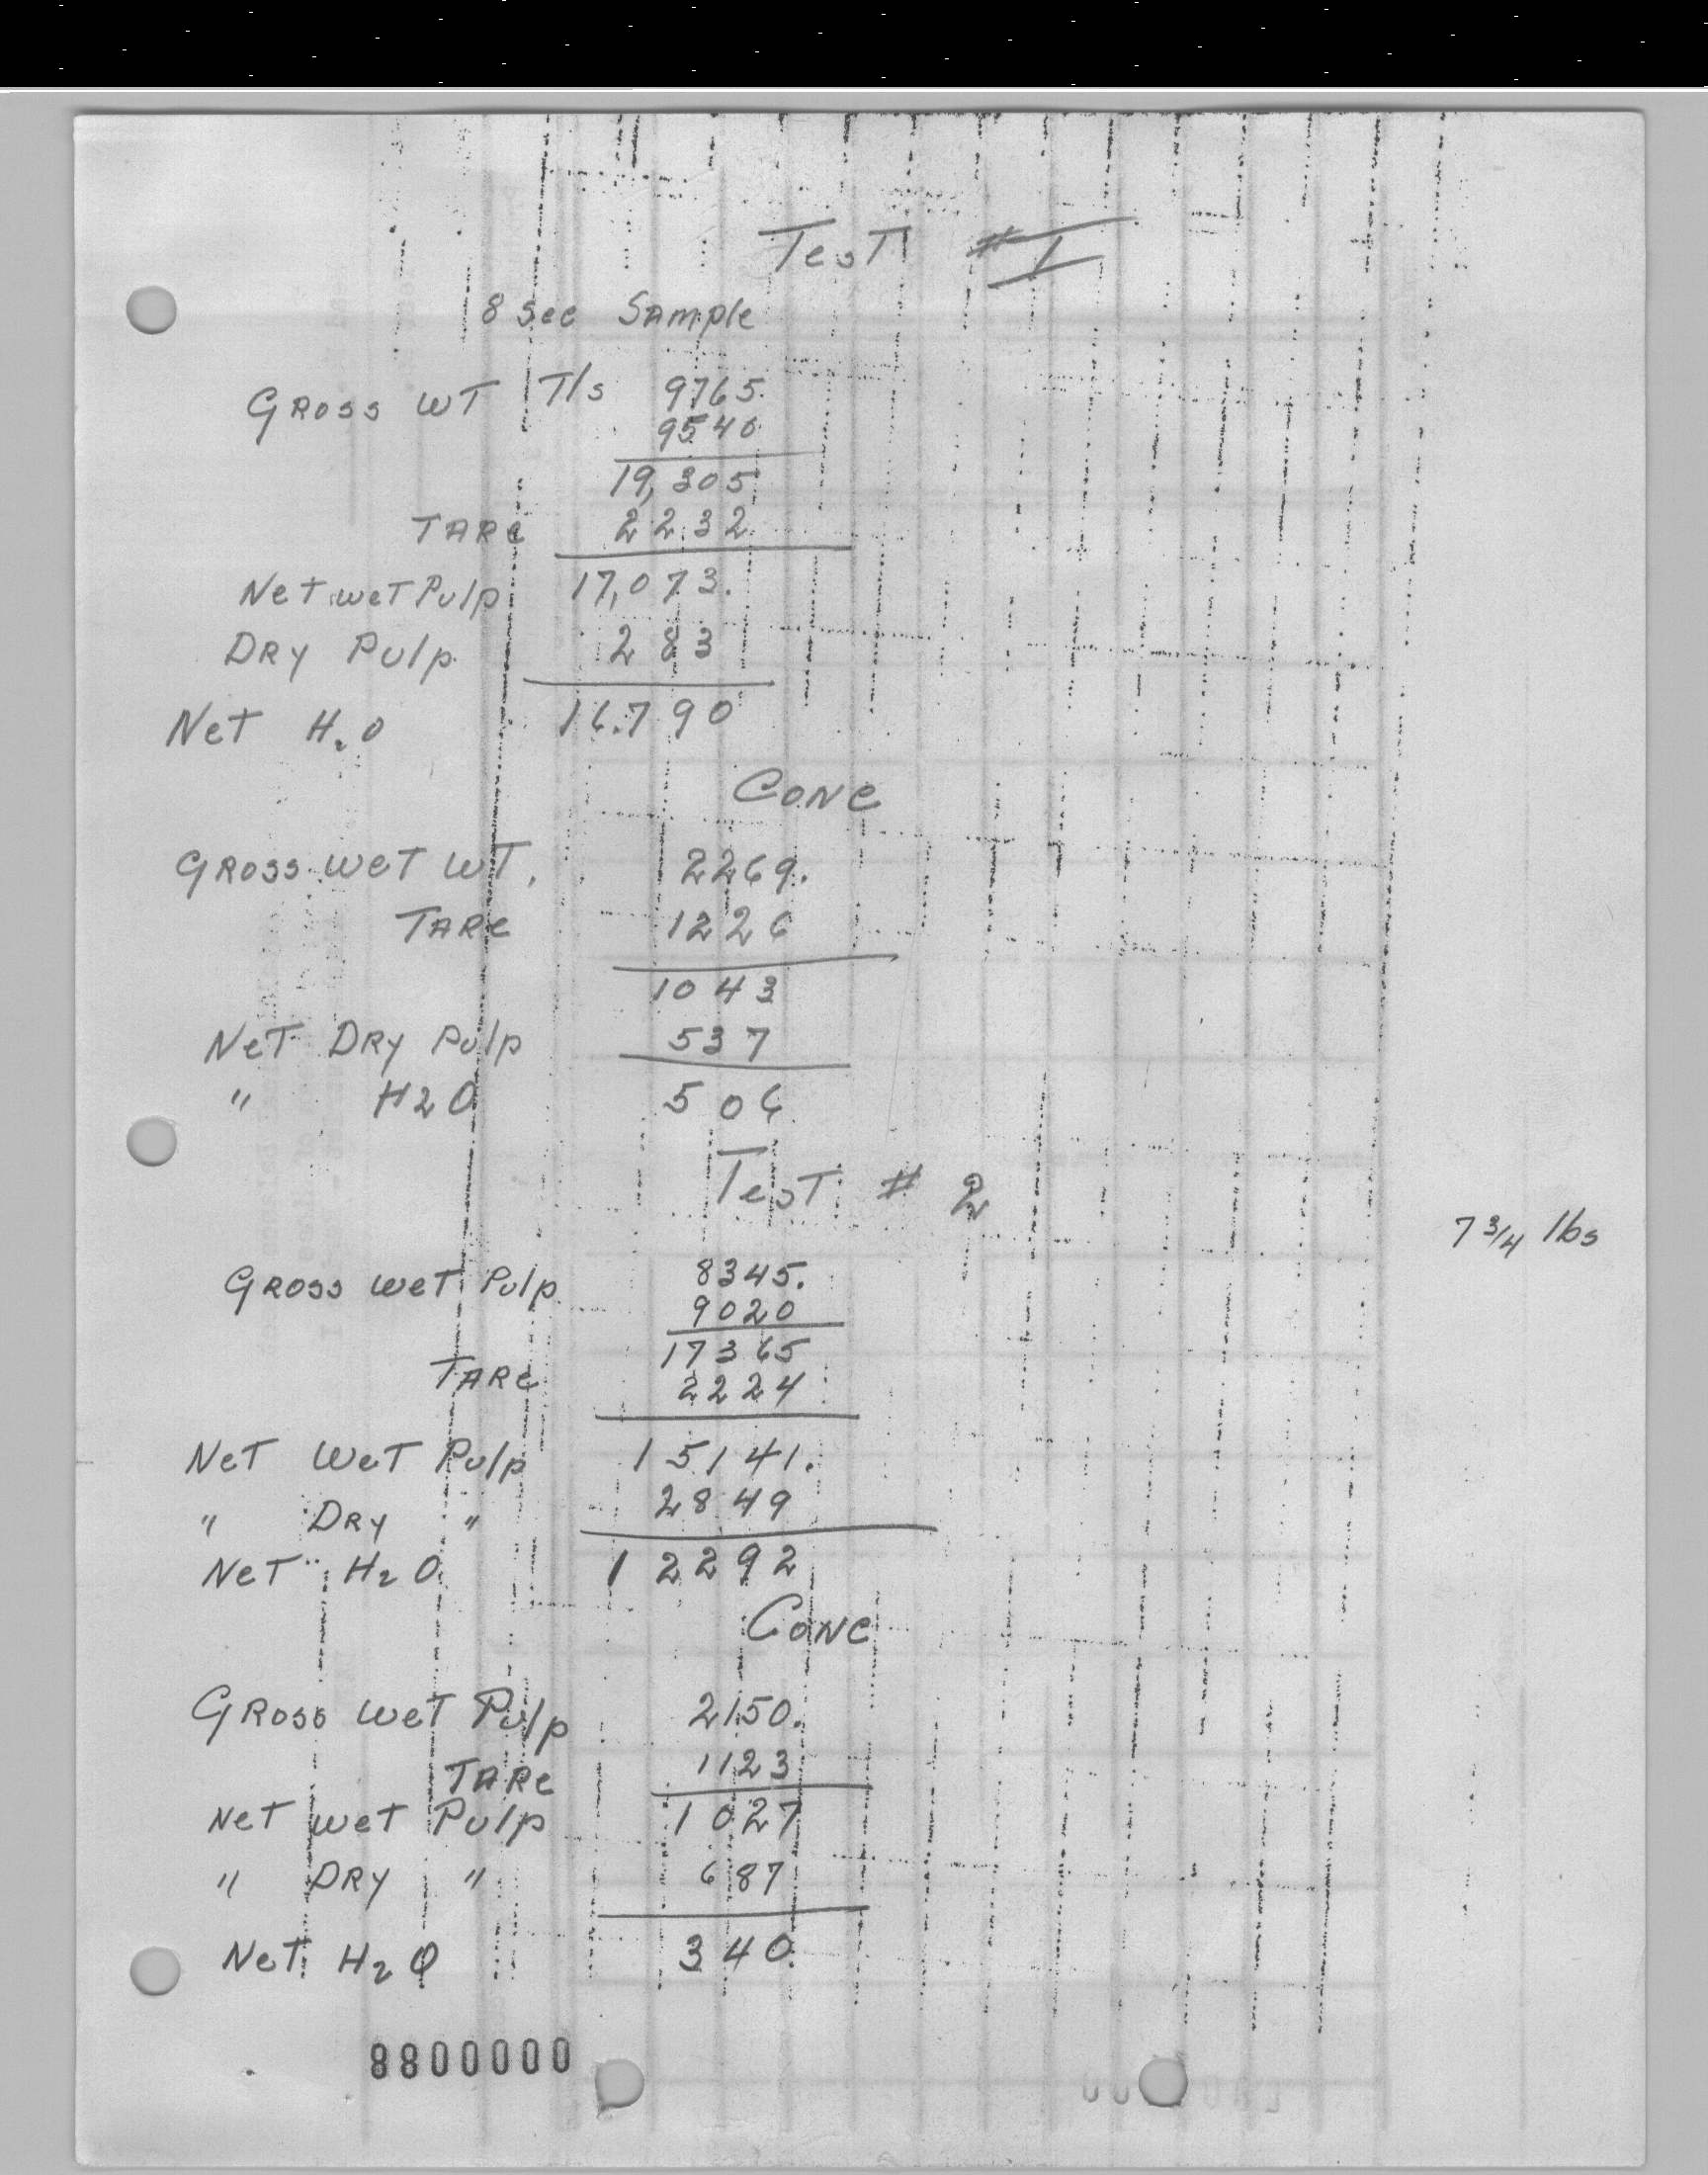 Test # 1
8 Sec Sample
Gross WT T/s 9765.
9540
19,305
Tare 2232
Net wet Pulp 17,073.
Dry Pulp 283
Net H2O 16.790
Conc
Gross wet WT. 2269.
Tare 1226
1043
Net Dry Pulp 537
" H2O 506
Test # 2
7 3/4 lbs
Gross wet Pulp 8345.
9020
17365
Tare 2224
Net Wet Pulp 15141.
" Dry " 2849
Net H2O 12292
Conc
Gross wet Pulp 2150.
Tare 1123
Net wet Pulp 1027
" Dry " 687
Net H2O 340
8800000